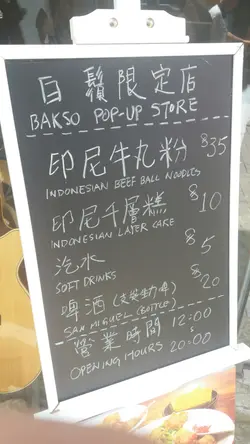 白鬚限定店
BAKSO POP-UP STORE
印尼牛丸粉 $35
INDONESIAN BEEF BALL NOODLES
印尼千層糕 $10
INDONESIAN LAYER CAKE
汽水 $5
SOFT DRINKS
啤酒(支裝生力啤) $20
SAN MIGUEL (BOTTLE)
營業時間 12:00
OPENING HOURS 20:00